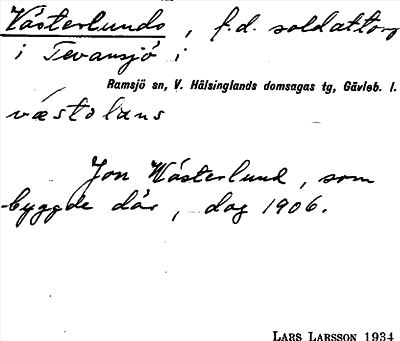 Västerlunds, f.d. soldattorp
i Tevansjö i
Ramsjö sn, V. Hälsinglands domsagas tg, Gävleb. l.
væstolans
Jon Wästerlund, som
byggde där, dog 1906.
LARS LARSSON 1934